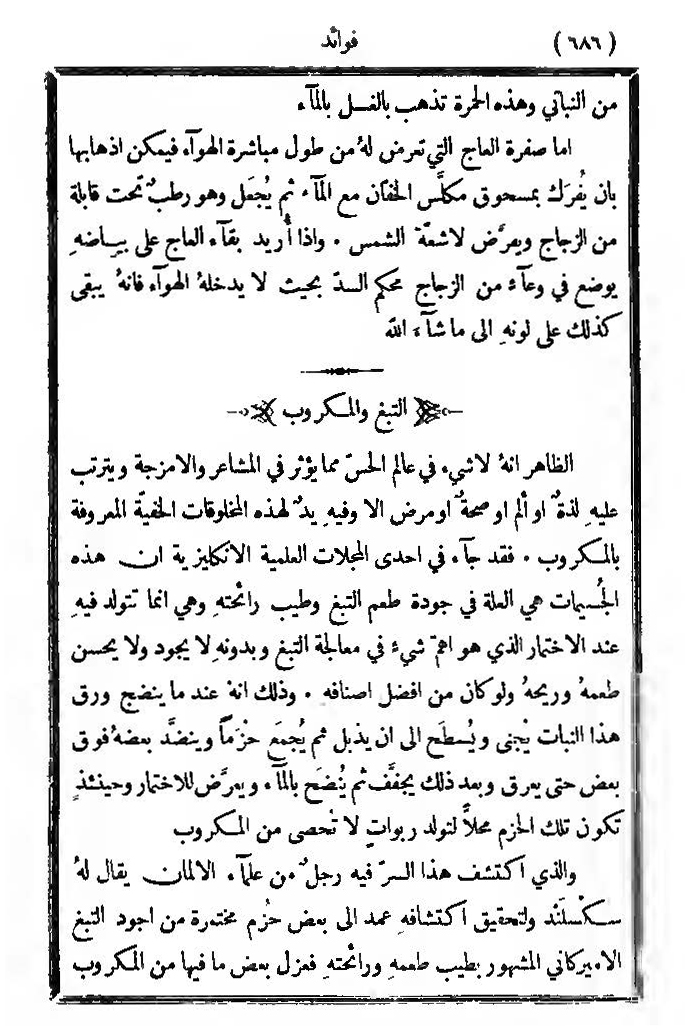 (٦٨٦) فوائد
من النباتي وهذه الحمرة تذهب بالغسل بالمآء
اما صفرة العاج التي تعرض لهُ من طول مباشرة الهوآء فيمكن اذهابها
بان يُفرَك بمسحوق مكلَّس الخفّان مع المآء ثم يُجعَل وهو رطبٌ تحت قابلة
من الزجاج ويعرَّض لاشعّة الشمس ٠ واذا أُريد بقآء العاج على بياضهِ
يوضع في وعآء من الزجاج محكم السدّ بحيث لا يدخلهُ الهوآء فانهُ يبقى
كذلك على لونهِ الى ما شآء الله
التبغ والمكروب
الظاهر انهُ لا شيء في عالم الحسّ مما يؤثر في المشاعر والامزجة ويترتب
عليهِ لذةٌ او ألم او صحةٌ او مرض الا وفيهِ يدٌ لهذه المخلوقات الخفيّة المعروفة
بالمكروب ٠ فقد جآء في احدى المجلات العلمية الانكليزية ان هذه
الجُسيمات هي العلة في جودة طعم التبغ وطيب رائحتهِ وهي انما تتولد فيهِ
عند الاختمار الذي هو اهمّ شيء في معالجة التبغ وبدونهِ لا يجود ولا يحسن
طعمهُ وريحهُ ولو كان من افضل اصنافهِ ٠ وذلك انهُ عند ما ينضج ورق
هذا النبات يُجنى ويُسطَح الى ان يذبل ثم يُجمَع حُزَماً وينضَّد بعضهُ فوق
بعض حتى يعرق وبعد ذلك يجفَّف ثم يُنضَح بالمآء ويعرَّض للاختمار وحينئذٍ
تكون تلك الحزم محلاًّ لتولد ربواتٍ لا تُحصى من المكروب
والذي اكتشف هذا السرّ فيه رجلٌ من علمآء الالمان يقال لهُ
سكسلَند ولتحقيق اكتشافهِ عمد الى بعض حُزَم مختمرة من اجود التبغ
الاميركاني المشهور بطيب طعمهِ ورائحتهِ فعزل بعض ما فيها من المكروب